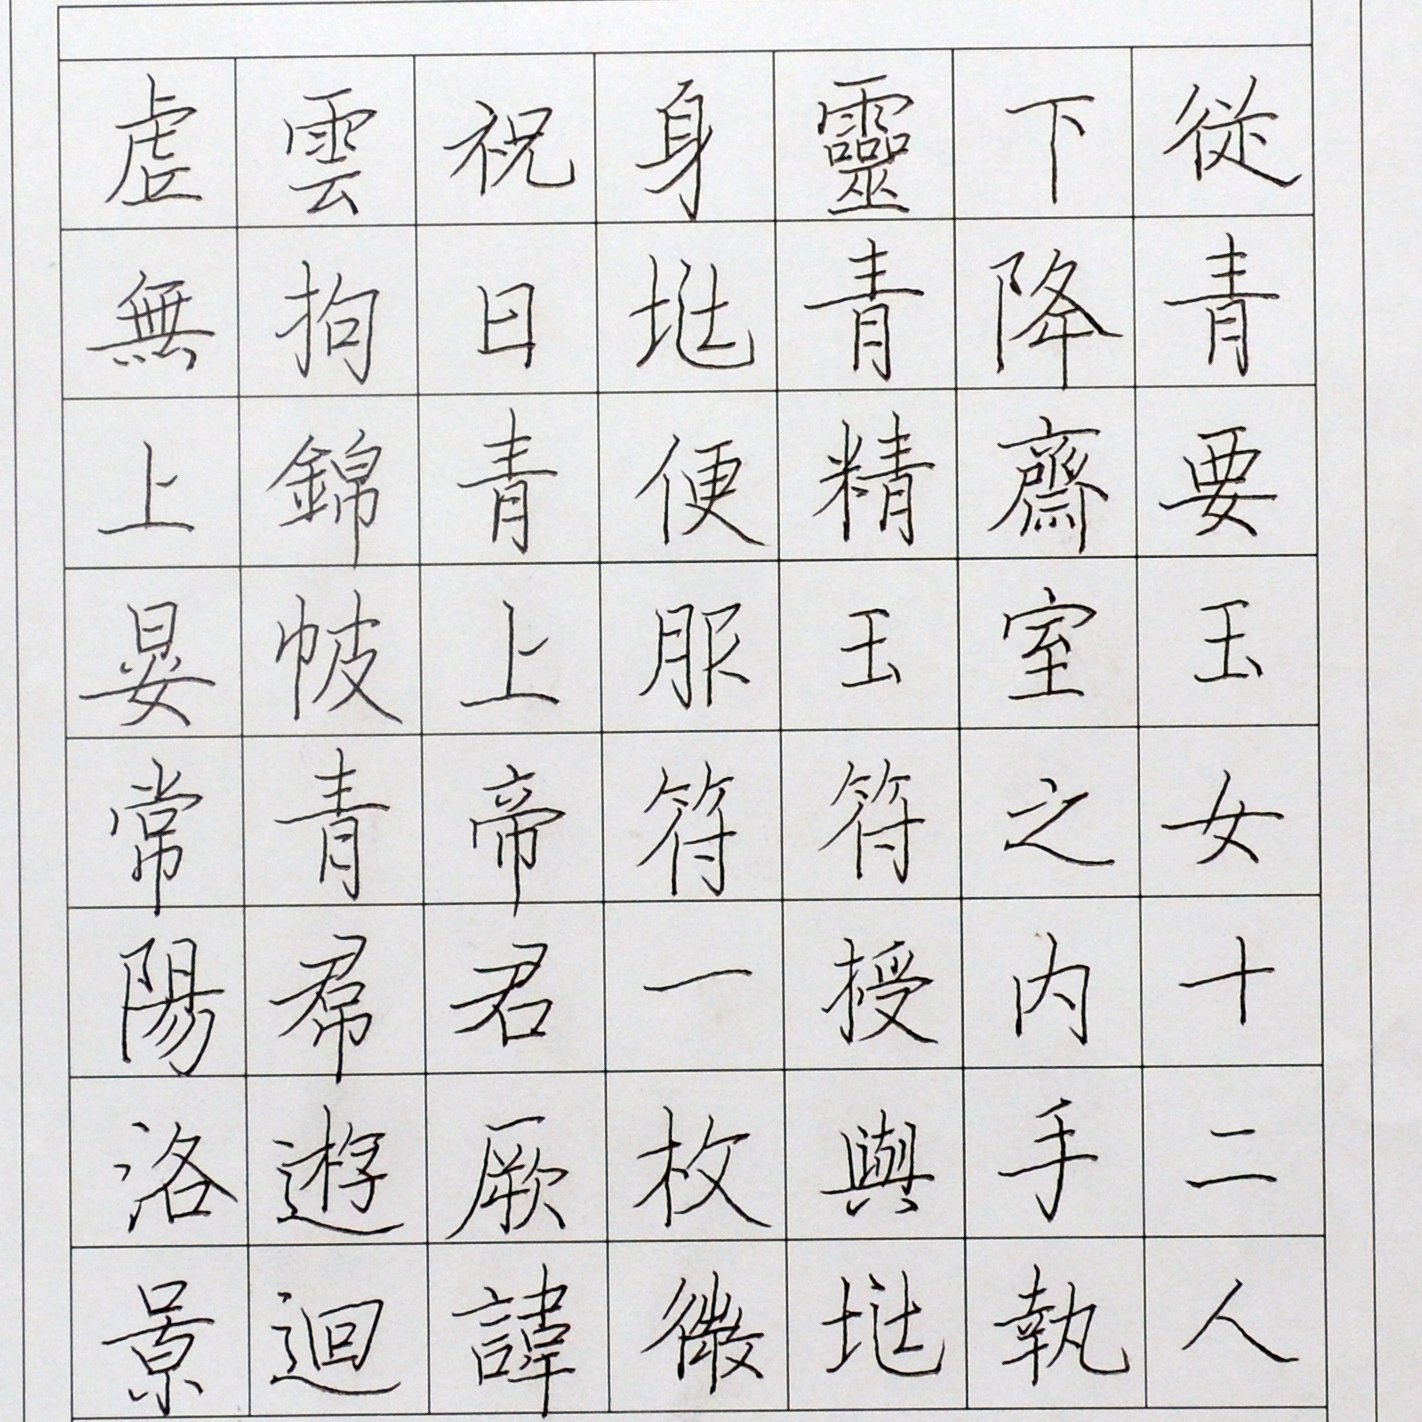 從青要玉女十二人
下降齋室之内手執
靈青精玉符授與垗
身垗便服符一枚微
祝曰青上帝君厥諱
雲拘錦帔青帬遊迴
虛無上晏常陽洛景